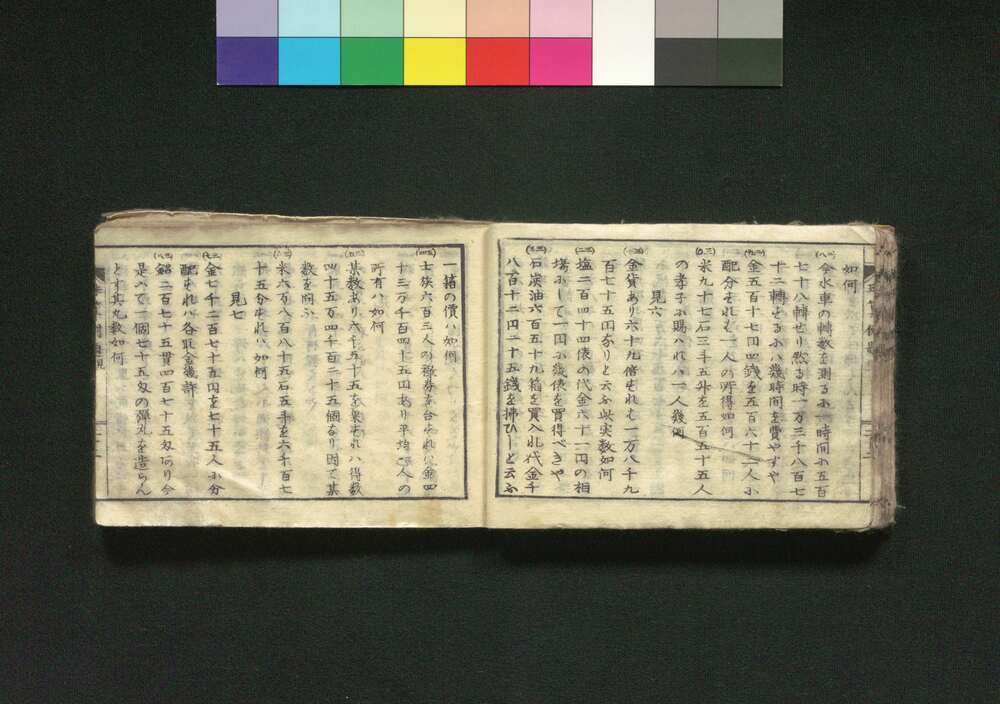 如何
今水車の轉数を測るに一時間に五百
七十八轉せり然る時一万三千八百七
十二轉するにハ幾時間を費やすや
金五百十七円四錢を五百六十二人に
配分すれハ一人の所得如何
米九十七石三斗五升を五百五十五人
の孝子に賜ハれハ一人幾何
見六
金貨あり六十九倍すれハ一万八千九
百七十五円なりと云ふ此実数如何
塩二百四十四俵の代金六十一円の相
場にして一円に幾俵を買得べきや
石炭油六百五十九箱を買入れ代金千
八百十二円二十五錢を拂ひしと云ふ
一箱の價ハ如何
士族六百三人の祿券を合すれハ金四
十三万千百四十五円あり平均一人の
所有ハ如何
某数あり六千五十五を乗すれハ得数
四十五万四千百二十五個なり因て其
数を問ふ
米六万八百八十五石五斗を六千百七
十五分すれハ如何
見七
金七千二百七十五円を七十五人に分
配すれハ各取金幾許
鉛二百七十五貫四百七十五匁あり今
是にて一個七十五匁の彈丸を造らん
とす其丸数如何